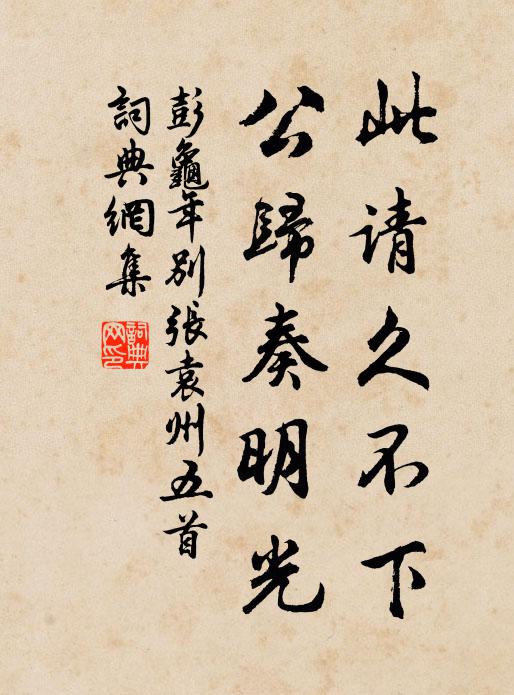 此请久不下
公歸奏明光
彭龜年别張袁州五首
詞典網集
詞典
网印